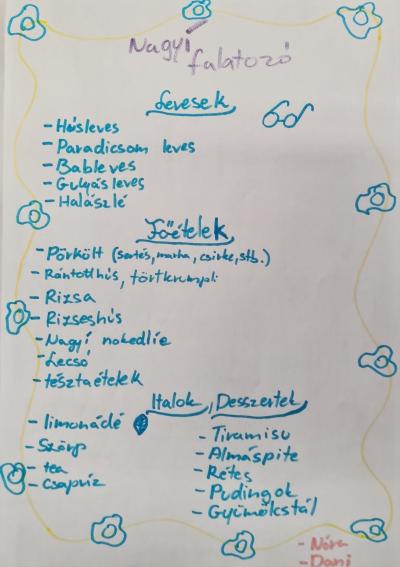 Nagyi
falatozó
Levesek
- Húsleves
- Paradicsom leves
- Bableves
- Gulyás leves
- Halászlé
Főételek
- Pörkölt (sertés, marha, csirke, stb.)
- Rántotthús, törtkrumpli
- Rizsa
- Rizseshús
- Nagyi nokedlie
- Lecsó
- tésztaételek
Italok, Desszertek
- limonádé
- Szörp
- tea
- Csapvíz
- Tiramisu
- Almáspite
- Rétes
- Pudingok
- Gyümölcstál
- Nóra
- Dani